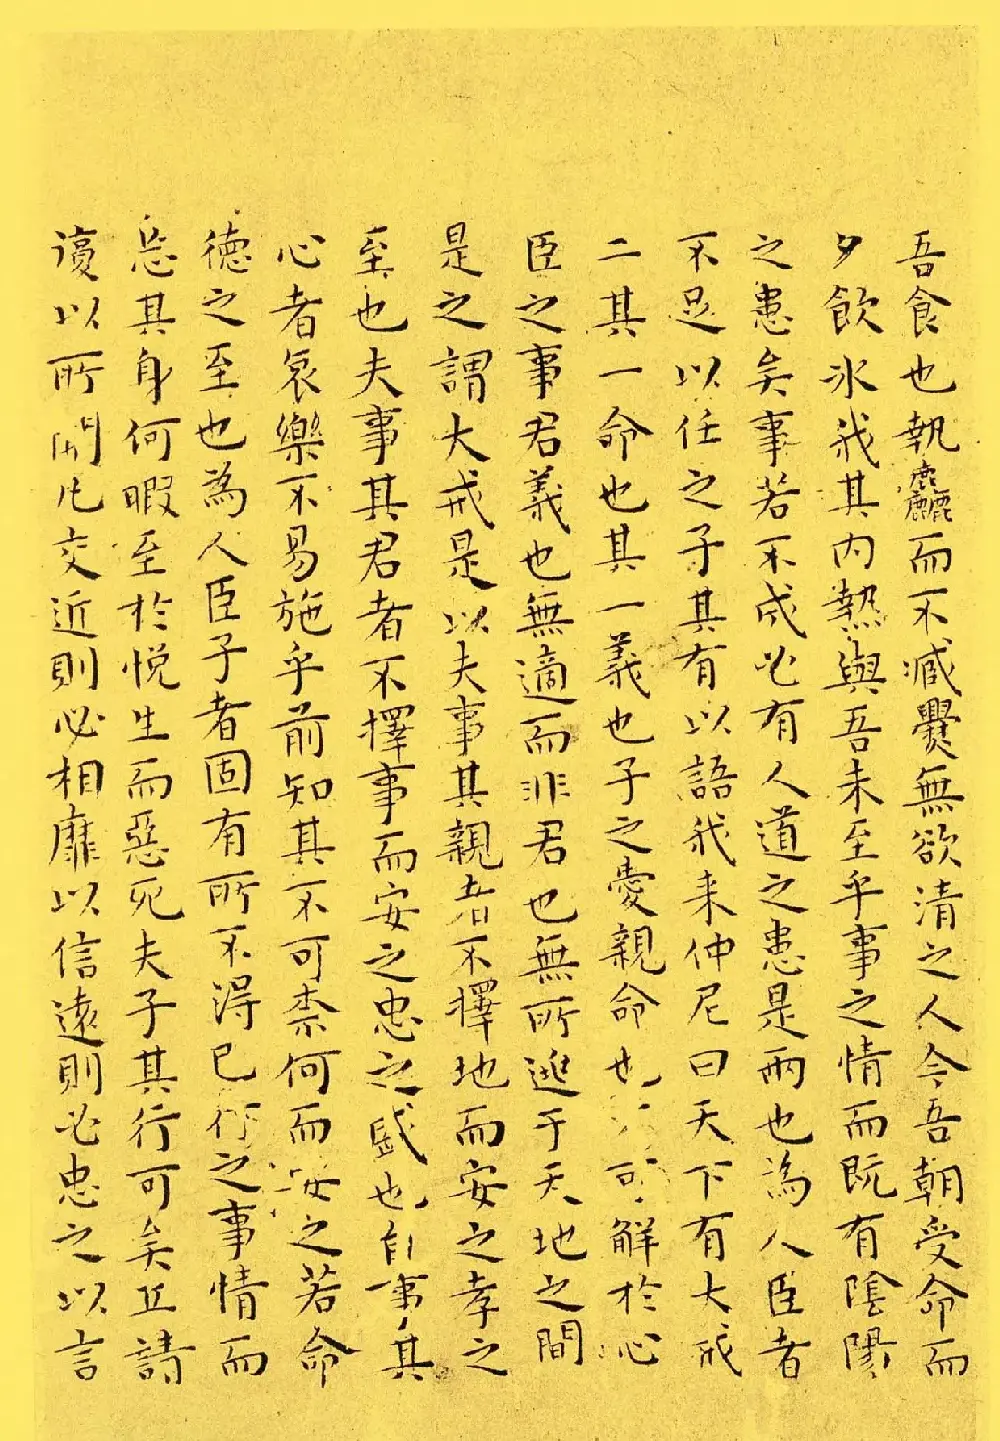 吾食也執麤而不臧爨無欲清之人今吾朝受命而
夕飲冰我其内熱與吾未至乎事之情而既有陰陽
之患矣事若不成必有人道之患是兩也為人臣者
不足以任之子其有以語我来仲尼曰天下有大戒
二其一命也其一義也子之愛親命也可解於心
臣之事君義也無適而非君也無所逃于天地之間
是之謂大戒是以夫事其親者不擇地而安之孝之
至也夫事其君者不擇事而安之忠之盛也自事其
心者哀樂不易施乎前知其不可柰何而安之若命
德之至也為人臣子者固有所不得已行之事情而
忘其身何暇至於悦生而惡死夫子其行可矣丘請
復以所聞凡交近則必相靡以信遠則必忠之以言